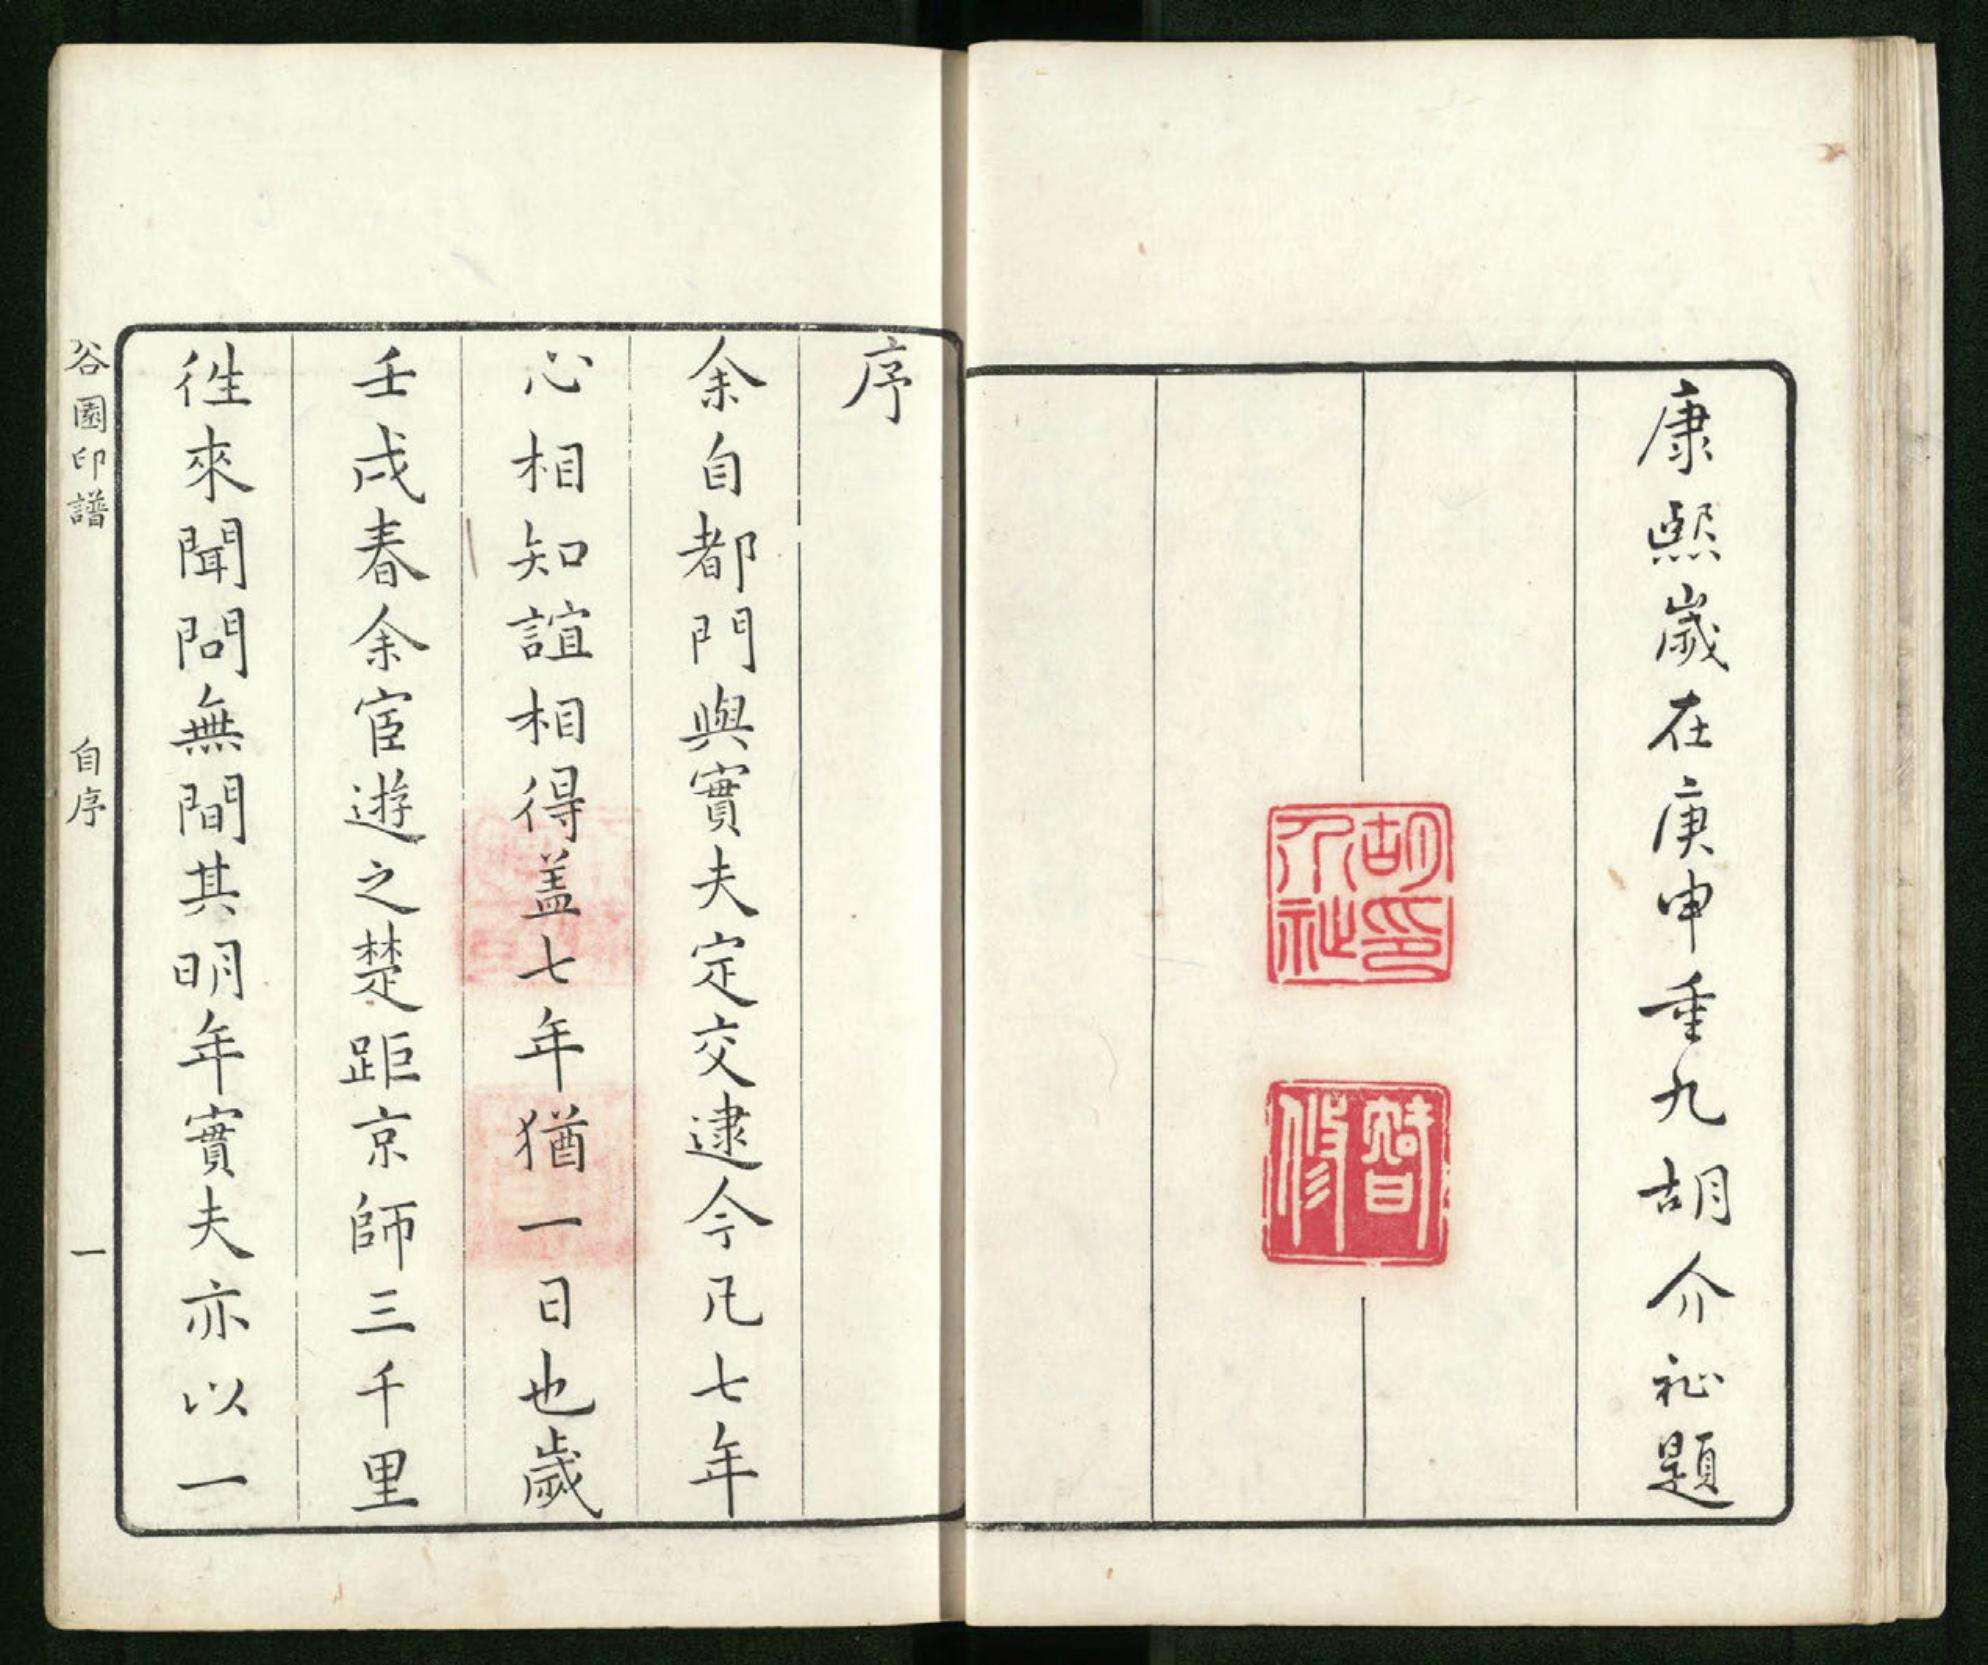 康熙歲在庚申重九胡介祉題
胡印介祉
智修
序
余自都門與實夫定交逮今凡七年
心相知誼相得盖七年猶一日也歲
壬戌春余宦遊之楚距京師三千里
徃來聞問無間其明年實夫亦以一
谷園印譜 自序 一